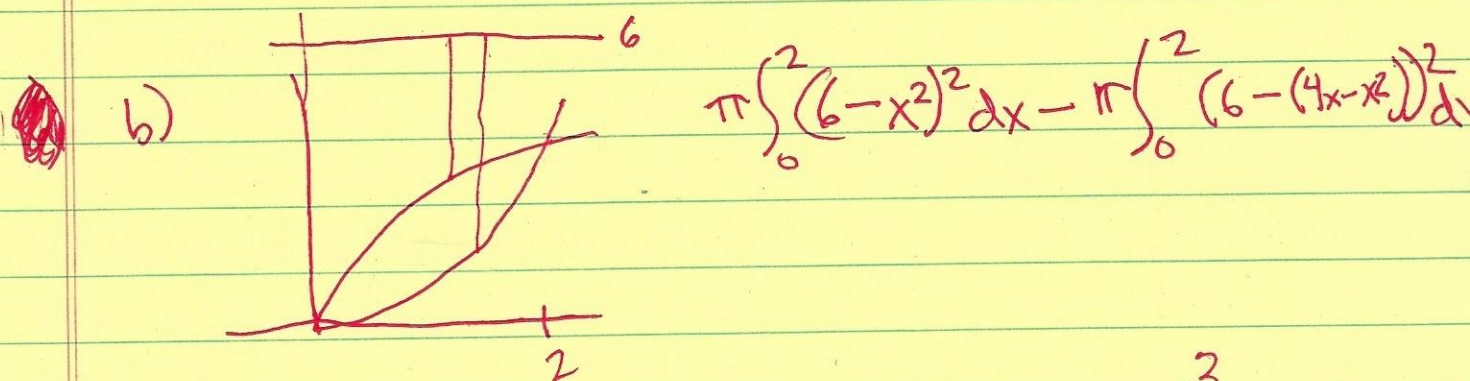 6
b) π∫₀² (6-x²)² dx - π∫₀² (6-(4x-x²))² d
2
2